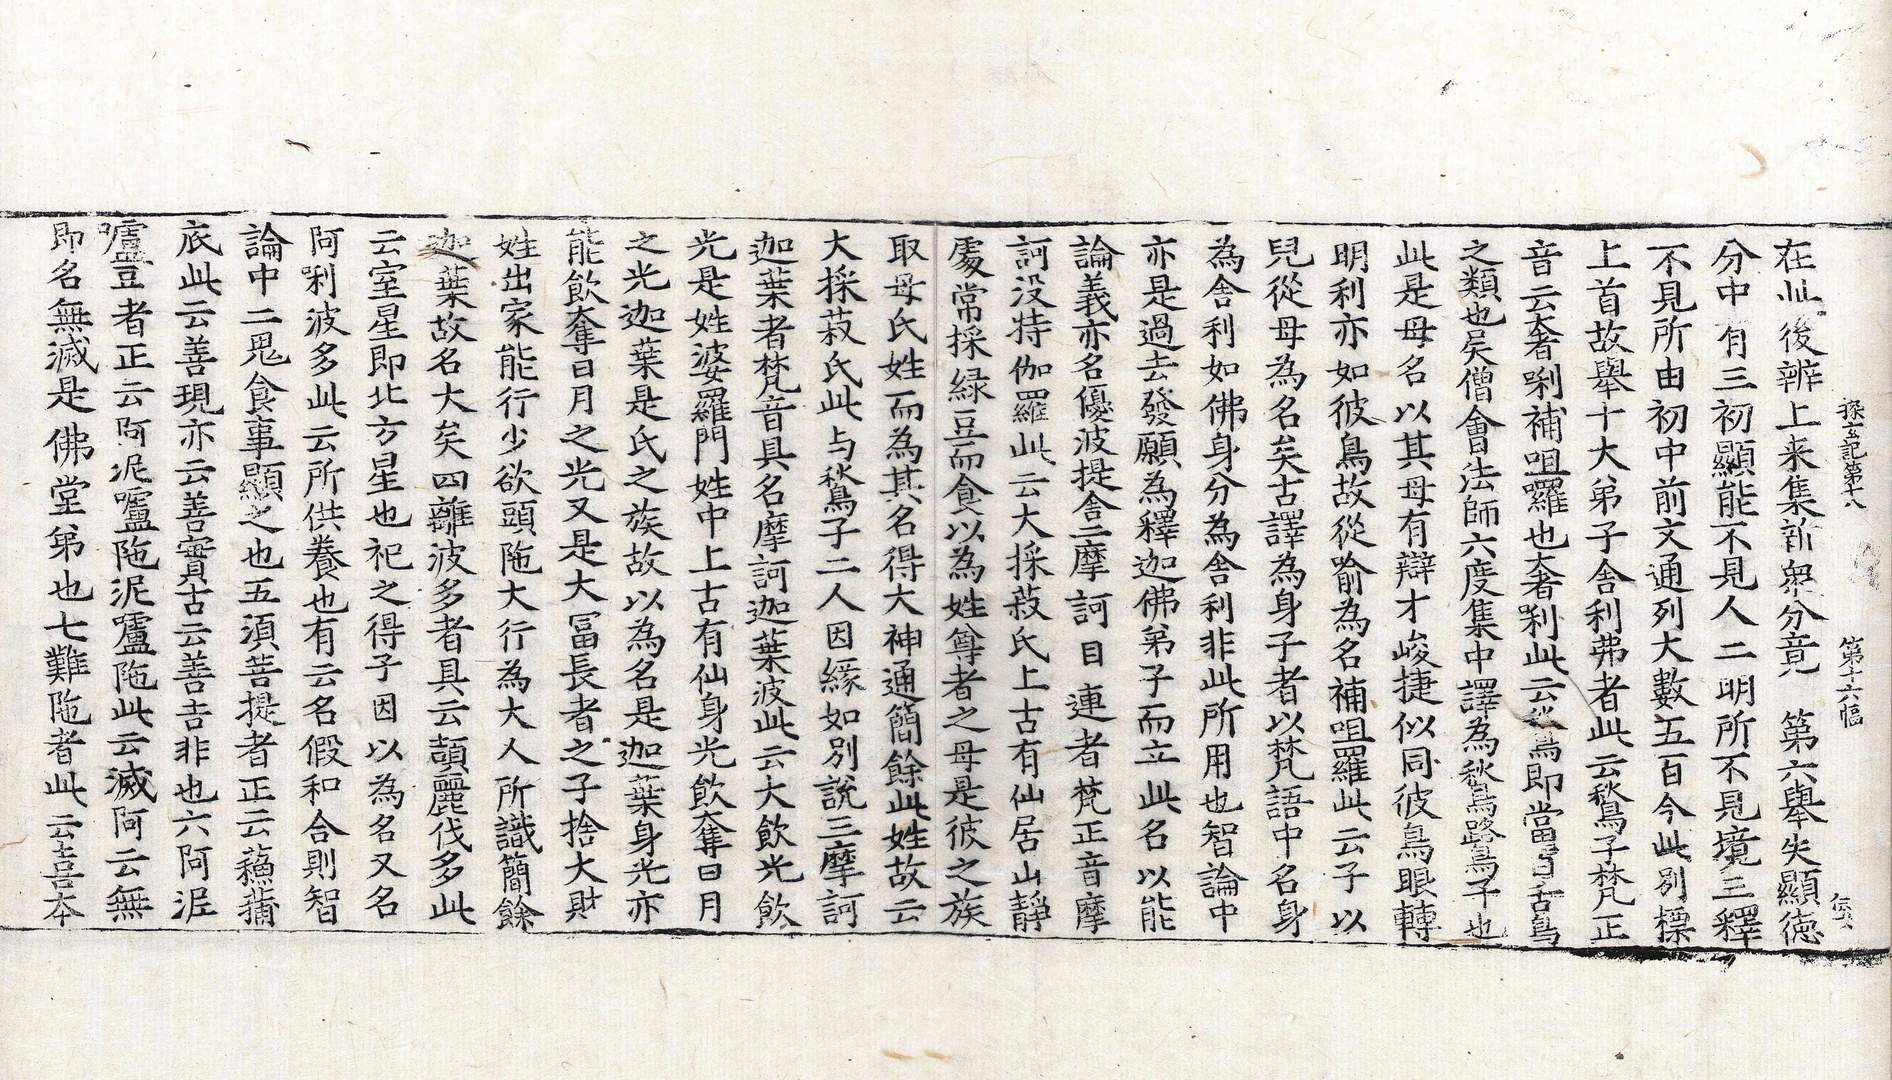 探玄記第十八　第十六幅
在此後辨上来集新衆分竟　第六舉失顯徳
分中有三初顯能不見人二明所不見境三釋
不見所由初中前文通列大數五百今此別標
上首故舉十大弟子舍利弗者此云鶖子梵正
音云奢唎補咀羅也奢利此云鶖鳥即當舌鳥
之類也吴僧會法師六度集中譯為鶖鷺子也
此是母名以其母有辯才峻捷似同彼鳥眼轉
明利亦如彼鳥故從喻為名補咀羅此云子以
兒從母為名矣古譯為身子者以梵語中名身
為舍利如佛身分為舍利非此所用也智論中
亦是過去發願為釋迦佛弟子而立此名以能
論義亦名優波提舍二摩訶目連者梵正音摩
訶没特伽羅此云大採菽氏上古有仙居山靜
處常採緑豆而食以為姓尊者之母是彼之族
取母氏姓而為其名得大神通簡餘此姓故云
大採菽氏此与鶖子二人因緣如別說三摩訶
迦葉者梵音具名摩訶迦葉波此云大飲光飲
光是姓婆羅門姓中上古有仙身光飲奪日月
之光迦葉是氏之族故以為名是迦葉身光亦
能飲奪日月之光又是大冨長者之子捨大財
姓出家能行少欲頭陁大行為大人所識簡餘
迦葉故名大矣四離波多者具云頡麗伐多此
云室星即北方星也祀之得子因以為名又名
阿唎波多此云所供養也有云名假和合則智
論中二鬼食事顯之也五湏菩提者正云蘓蒲
底此云善現亦云善實古云善吉非也六阿泥
嚧豆者正云阿泥嚧陁泥嚧陁此云滅阿云無
即名無滅是佛堂弟也七難陁者此云喜本